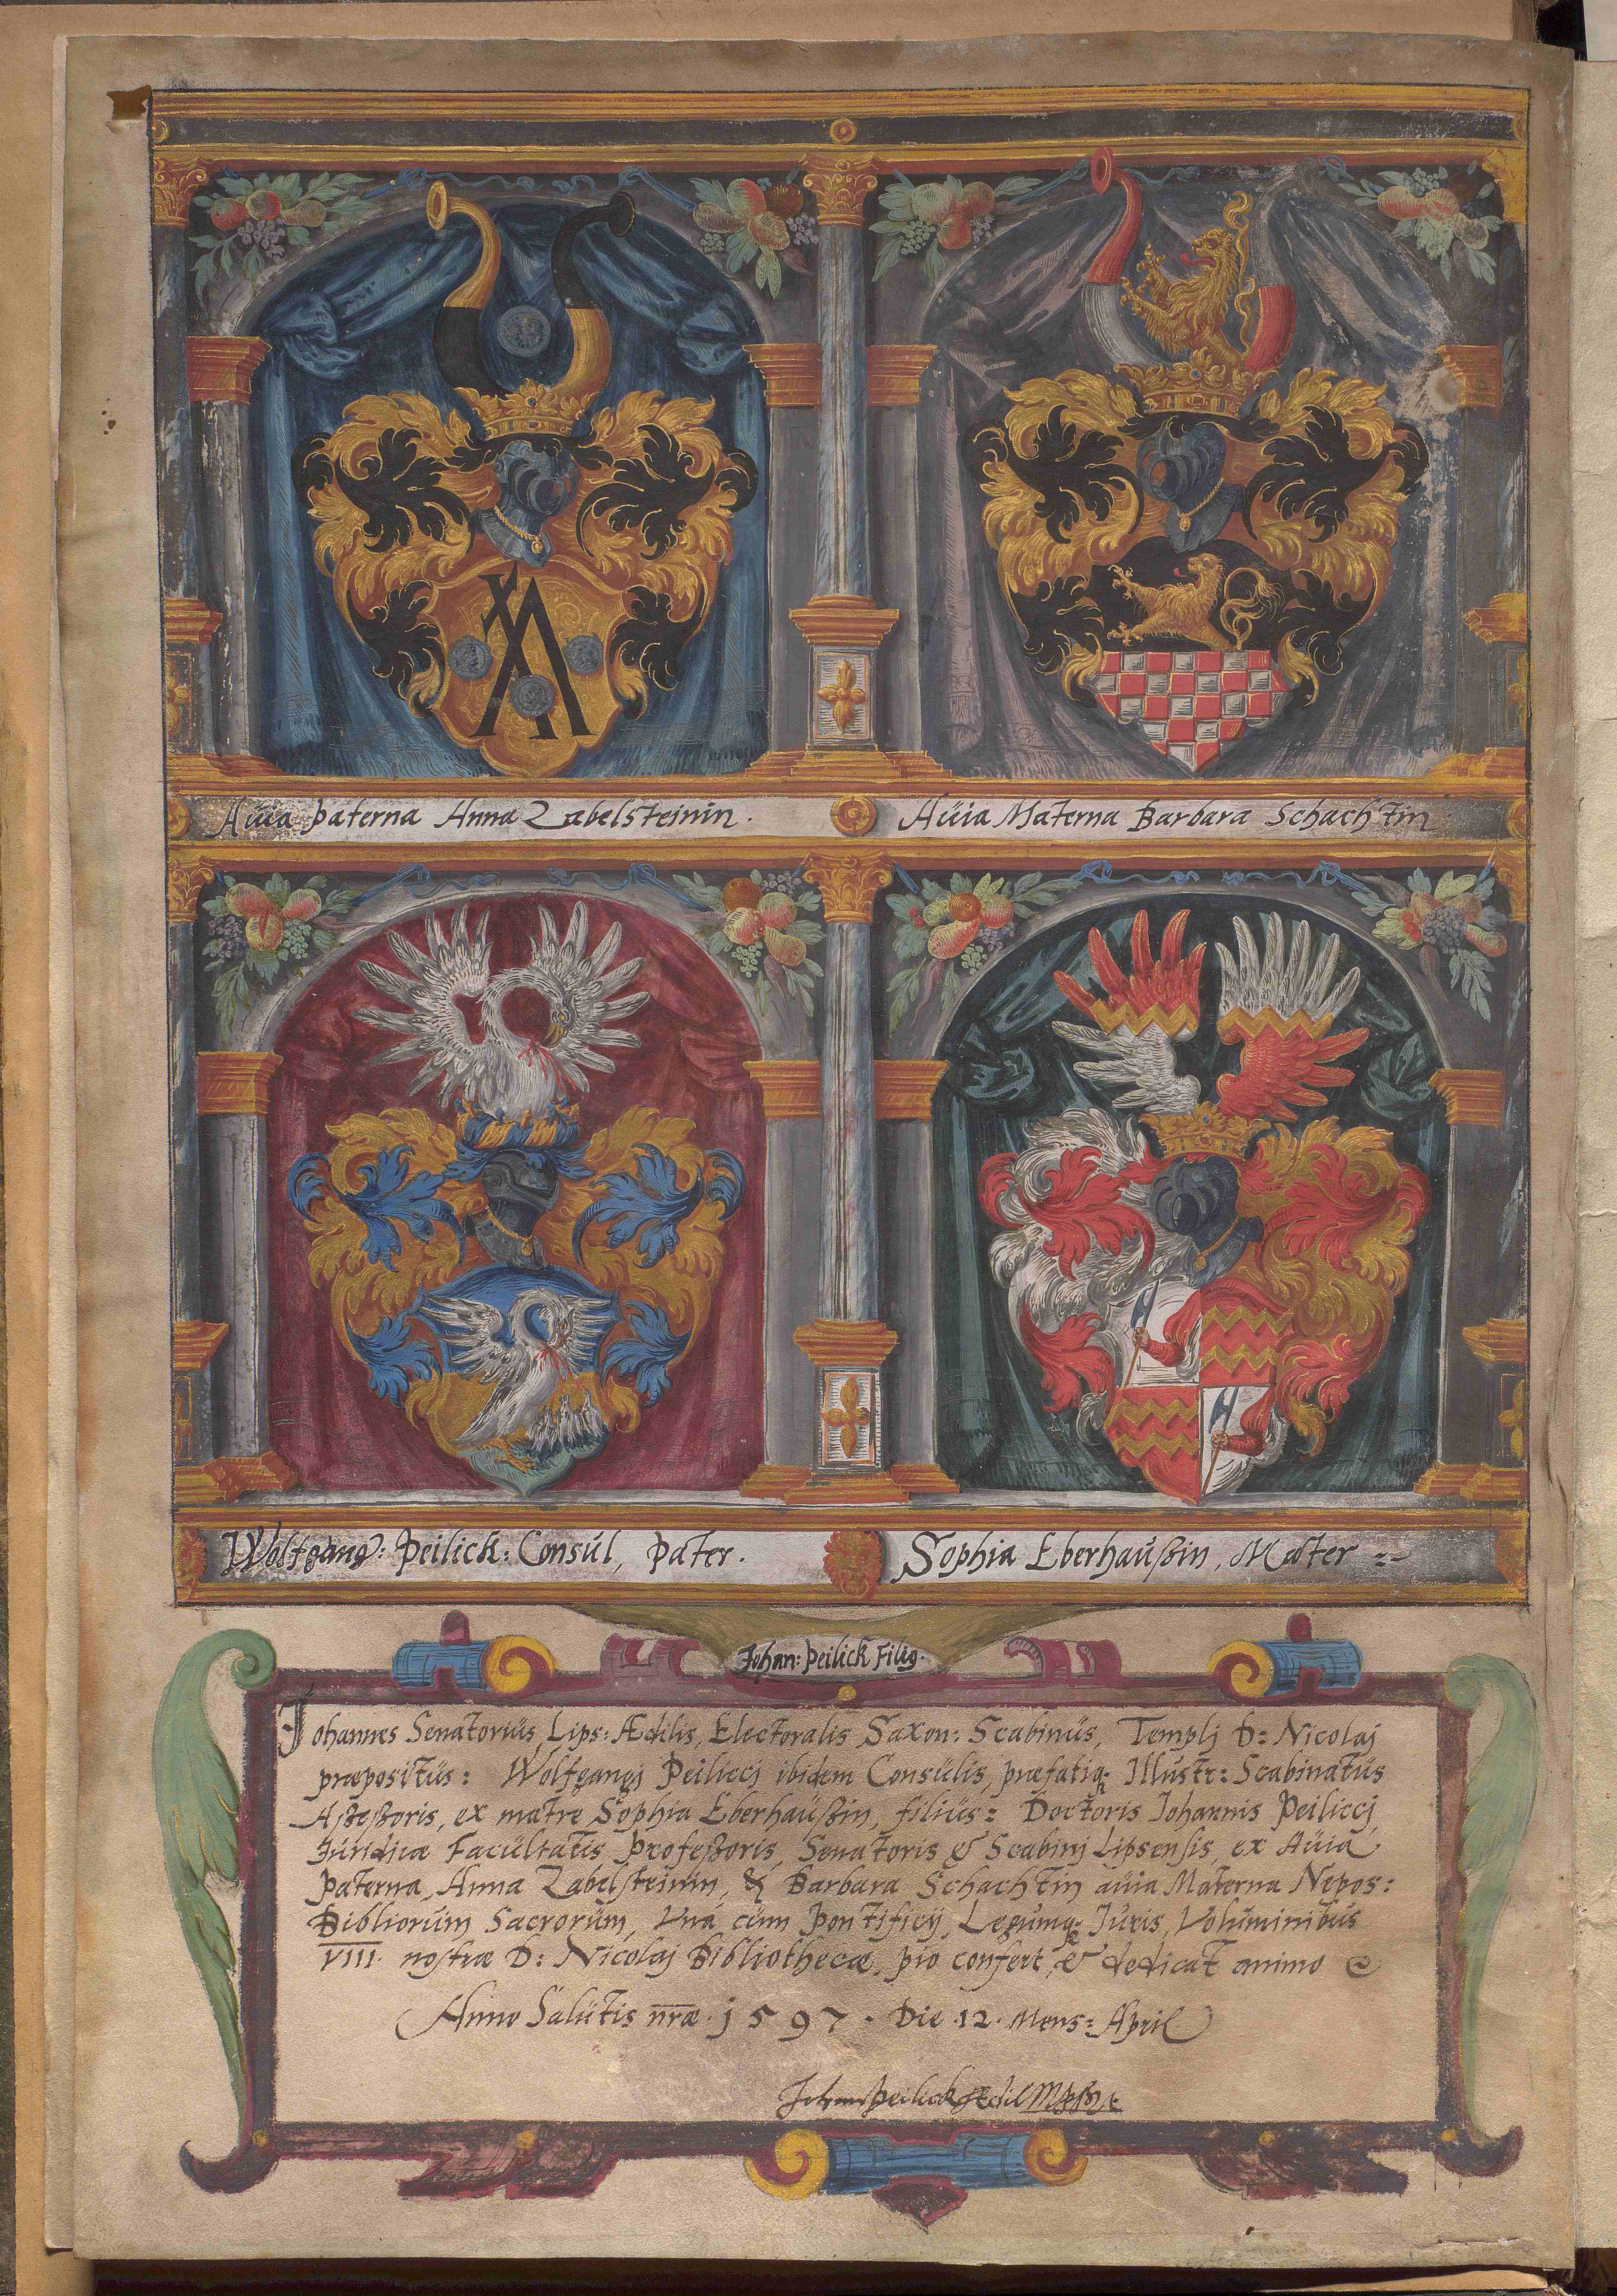 Auia Paterna Anna Zabelsteinin.
Auia Materna Barbara Schachtin
Wolfgang: Peilick: Consul, Pater.
Sophia Eberhaußin, Mater
Johan: Peilick Filig.
Johannes Senatorius, Lips: Ædilis, Electoralis Saxon: Scabinus, Templj D: Nicolaj
præpositus: Wolfgangj Peiliccj ibidem Consulis, præfatiq; Illustr: Scabinatus
Aßeßoris, ex matre Sophia Eberhaußin, filius: Doctoris Johannis Peiliccj,
Juridicæ Facultatis Profeßoris, Senatoris & Scabinj Lipsensis, ex Auia
Paterna, Anna Zabelsteinin, & Barbara Schachtin auia Materna Nepos:
Bibliorum Sacrorum, Vná cum Pontificij, Legumq; Juris, Voluminibus
VIII. nostræ D: Nicolaj Bibliothecæ, pio confert, & dedicat animo
Anno Salutis nræ. 1597. Die .12. Mens: April
Johan Peilick Ædil